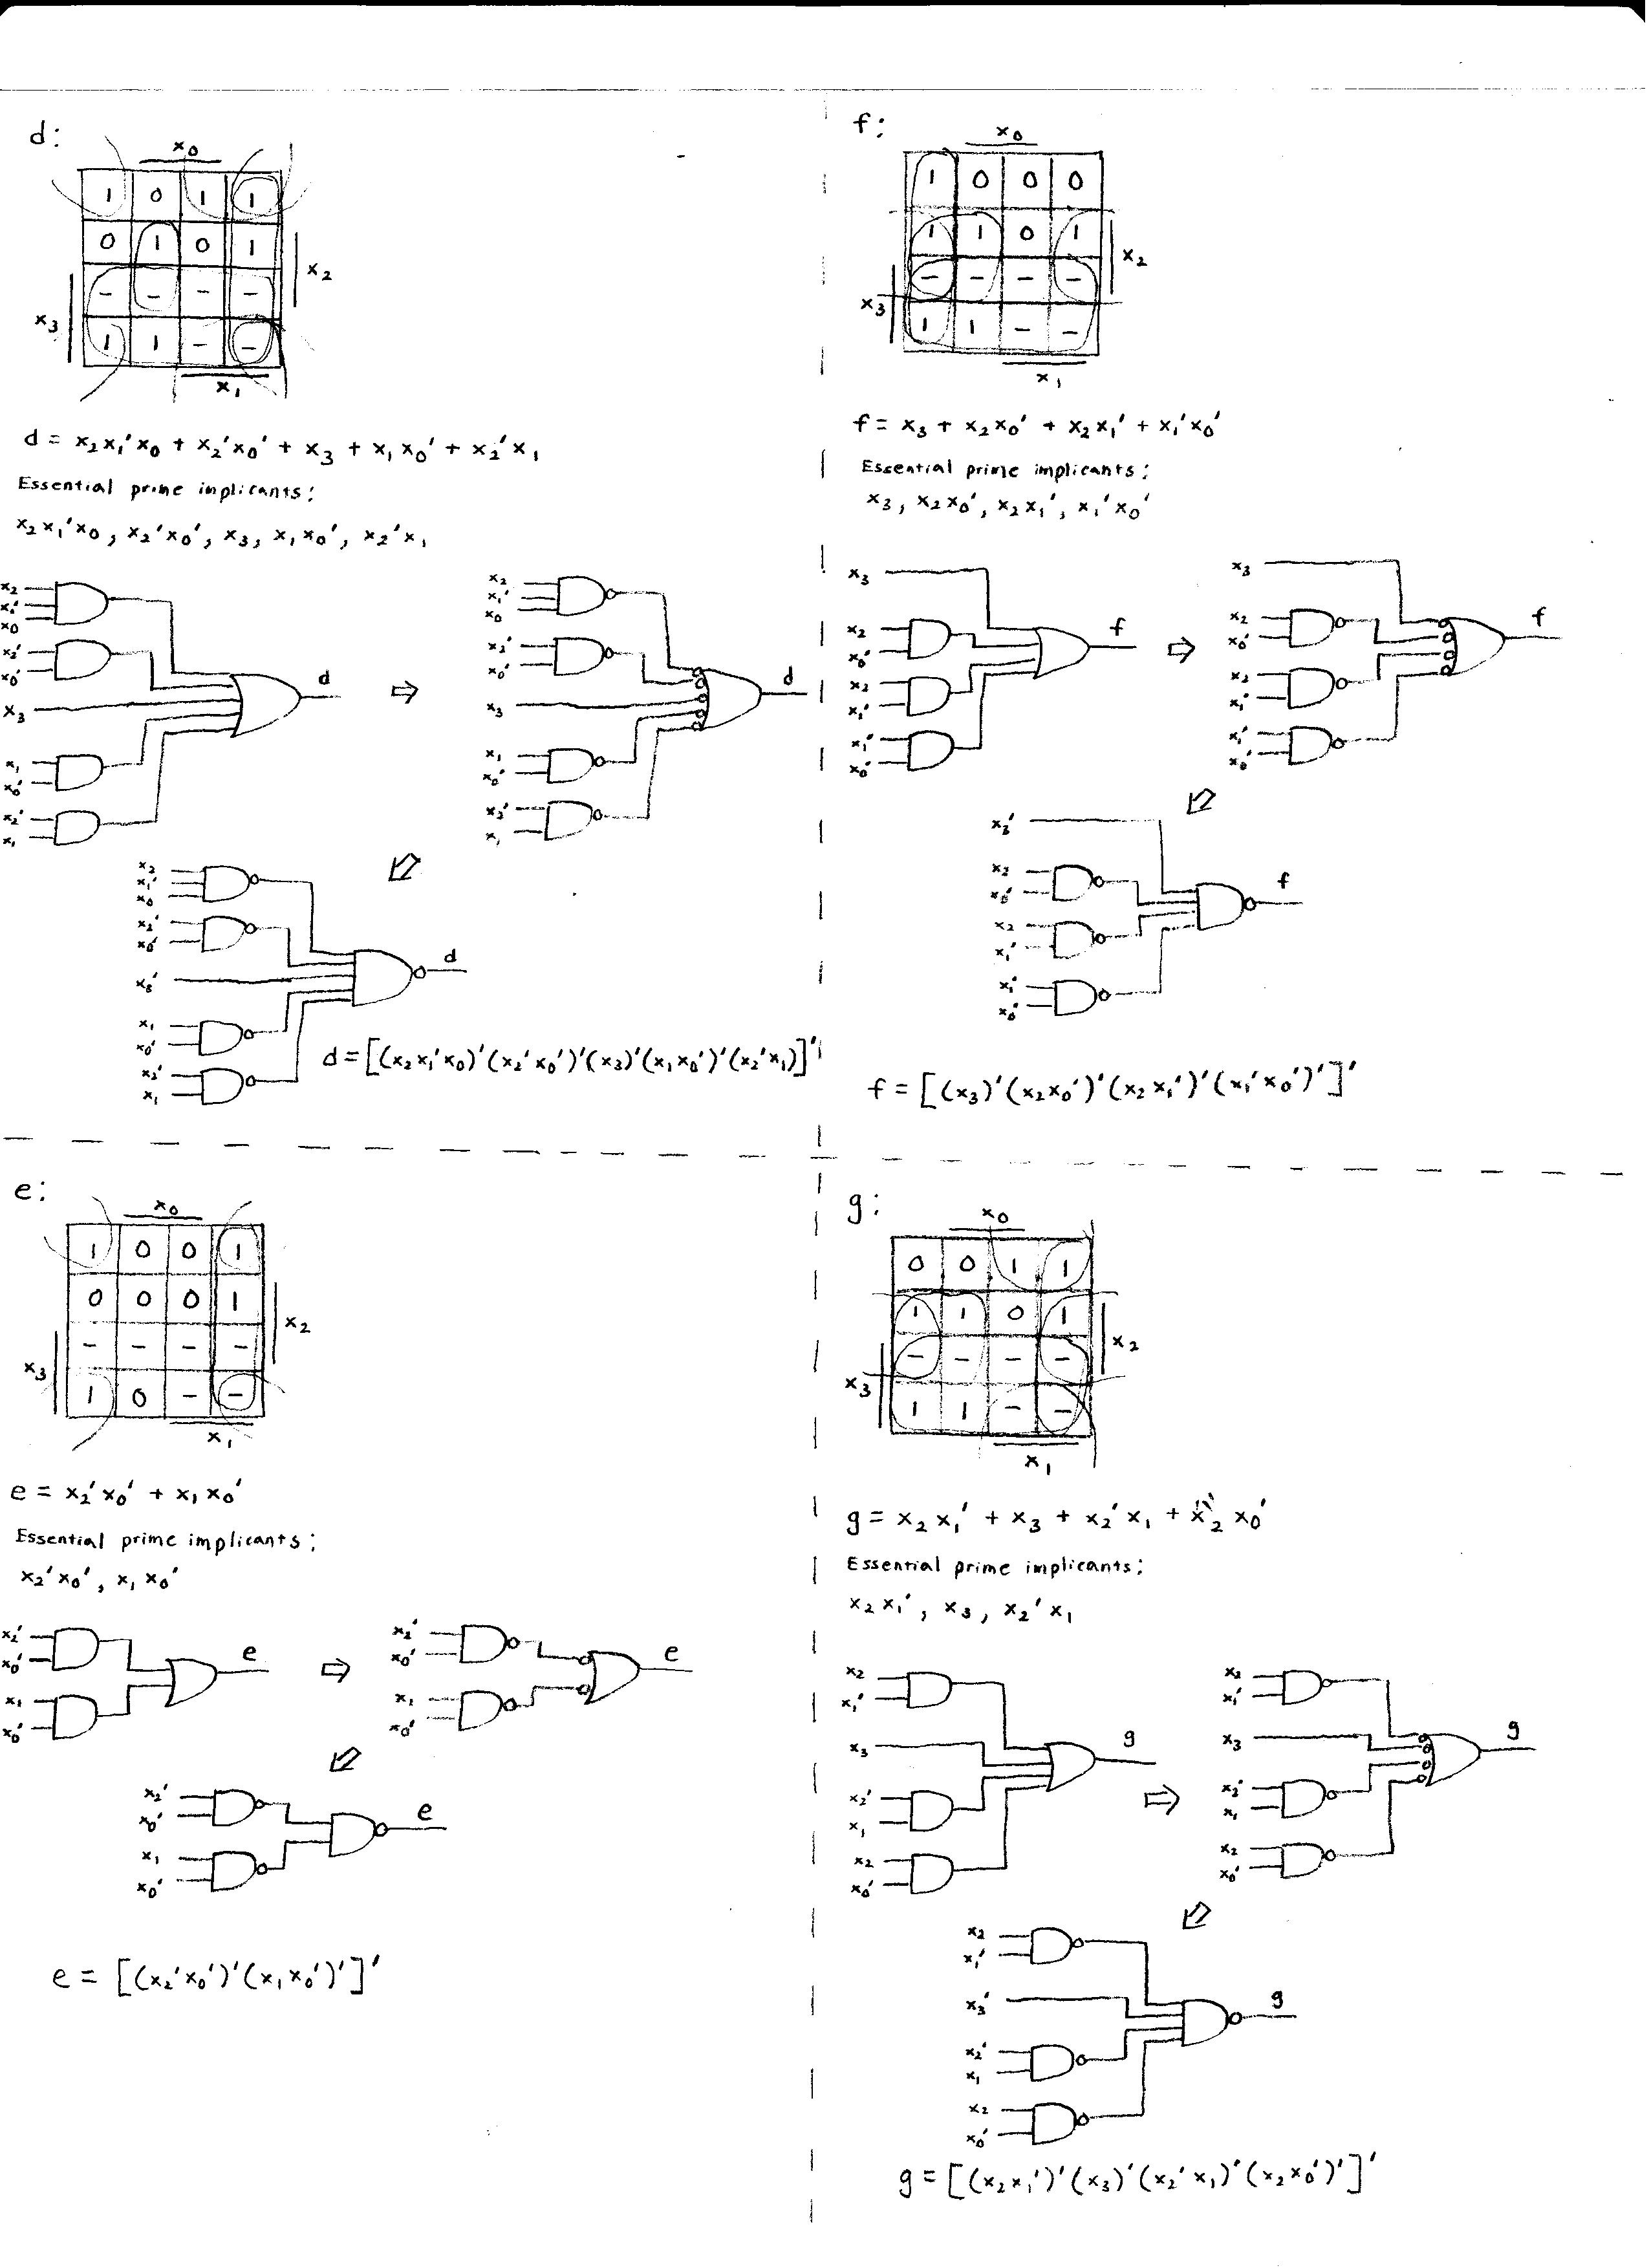 d:
x₀
1 0 1 1
0 1 0 1
x₂
- - - -
x₃
1 1 - -
x₁
d = x₂x₁'x₀ + x₂'x₀' + x₃ + x₁x₀' + x₂'x₁
Essential prime implicants:
x₂x₁'x₀, x₂'x₀', x₃, x₁x₀', x₂'x₁
x₂
x₁'
x₀
x₂'
x₀'
x₃
x₁
x₀'
x₂'
x₁
d
⇨
x₂
x₁'
x₀
x₂'
x₀'
x₃
x₁
x₀'
x₂'
x₁
d
x₂
x₁'
x₀
x₂'
x₀'
x₃'
x₁
x₀'
x₂'
x₁
d
d = [(x₂x₁'x₀)'(x₂'x₀')'(x₃)'(x₁x₀')'(x₂'x₁)]'
f:
x₀
1 0 0 0
1 1 0 1
x₂
- - - -
x₃
1 1 - -
x₁
f = x₃ + x₂x₀' + x₂x₁' + x₁'x₀'
Essential prime implicants:
x₃, x₂x₀', x₂x₁', x₁'x₀'
x₃
x₂
x₀'
x₂
x₁'
x₁'
x₀'
f
⇨
x₃
x₂
x₀'
x₂
x₁'
x₁'
x₀'
f
x₃'
x₂
x₀'
x₂
x₁'
x₁'
x₀'
f
f = [(x₃)'(x₂x₀')'(x₂x₁')'(x₁'x₀')']'
e:
x₀
1 0 0 1
0 0 0 1
x₂
- - - -
x₃
1 0 - -
x₁
e = x₂'x₀' + x₁x₀'
Essential prime implicants:
x₂'x₀', x₁x₀'
x₂'
x₀'
x₁
x₀'
e
⇨
x₂'
x₀'
x₁
x₀'
e
x₂'
x₀'
x₁
x₀'
e
e = [(x₂'x₀')'(x₁x₀')']'
g:
x₀
0 0 1 1
1 1 0 1
x₂
- - - -
x₃
1 1 - -
x₁
g = x₂x₁' + x₃ + x₂'x₁ + x₂x₀'
Essential prime implicants:
x₂x₁', x₃, x₂'x₁
x₂
x₁'
x₃
x₂'
x₁
x₂
x₀'
g
⇨
x₂
x₁'
x₃
x₂'
x₁
x₂
x₀'
g
x₂
x₁'
x₃'
x₂'
x₁
x₂
x₀'
g
g = [(x₂x₁')'(x₃)'(x₂'x₁)'(x₂x₀')']'